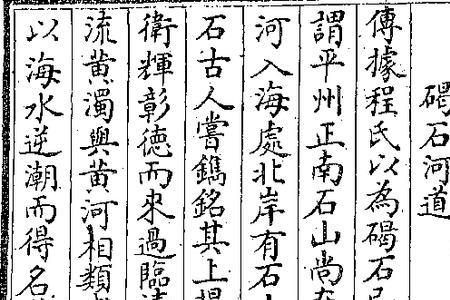 碣石河道
傳據程氏以為碣石
謂平州正南石山尚在
河入海處北岸有石
石古人嘗鐫銘其上
衛輝彰德而來過臨清
流黄濁與黄河相類
以海水逆潮而得名